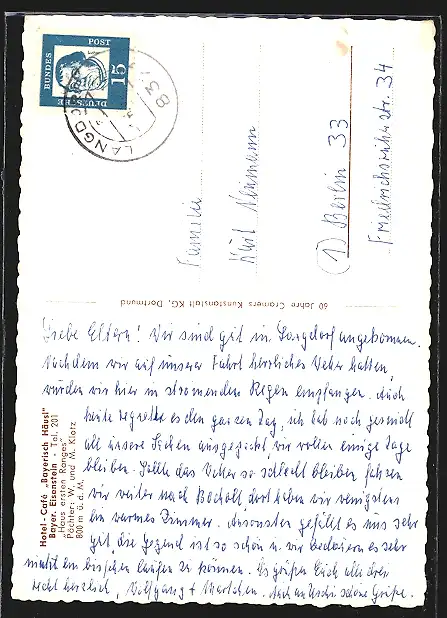 DEUTSCHE
BUNDES
POST
15
LANGDORF
831
Familie
Kurt Neumann
(1) Berlin 33
Friedrichsruher str. 34
60 Jahre Cramers Kunstanstalt KG, Dortmund
Hotel - Café „Bayerisch Häusl"
Bayer. Eisenstein - Tel. 201
„Haus ersten Ranges"
Pächter: W. und M. Klotz
800 m ü. d. M.
Liebe Eltern! Wir sind gut in Langdorf angekommen.
Nachdem wir auf unserer Fahrt herrliches Wetter hatten,
wurden wir hier in strömendem Regen empfangen. Auch
heute regnete es den ganzen Tag, ich hab noch
all unsere Sachen ausgepackt wir wollen einige Tage
bleiben. Sollte das Wetter so schlecht bleiben fahren
wir weiter nach Bocholt dort haben wir wenigstens
ein warmes Zimmer. Ansonsten gefällt es uns sehr
gut, die Gegend ist so schön u. wir bedauern es sehr
nicht ein bisschen laufen zu können. Es grüßen Euch alle drei
recht herzlich, Wolfgang + Marlchen. Auch an Uschi schöne Grüße.